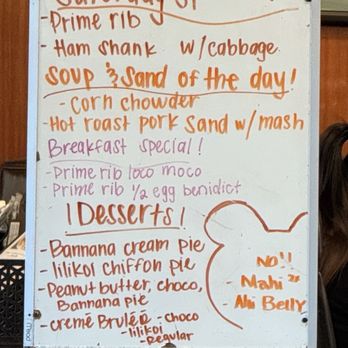 Saturday
- Prime rib
- Ham shank w/cabbage
Soup & Sand of the day!
- Corn chowder
- Hot roast pork Sand w/ mash
Breakfast special!
- Prime rib loco moco
- Prime rib 1/2 egg benidict
! Desserts !
- Bannana cream pie
- lilikoi chiffon pie
- Peanut butter, choco,
Bannana pie
- cremé Bruleé - choco
- lilikoi
- Regular
NO!!
- Mahi
- Ahi Belly